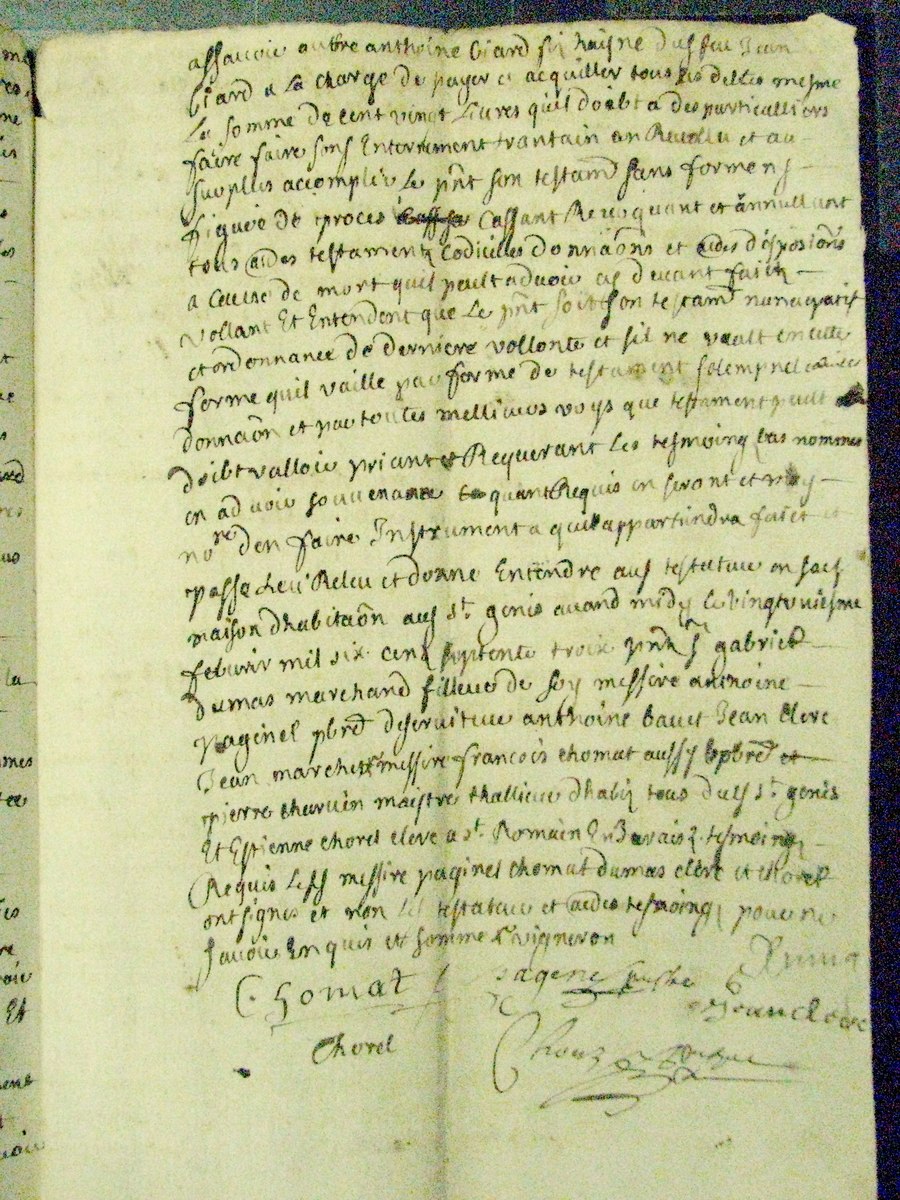 assavoir autre anthoine Ciard filz naisne dusfeu Jean
Ciard a la charge de payer et acquitter tous les debtes mesme
la somme de cent vingt livres quil doibt a des particulliers
faire faire sons Enterrement trantain an Revollu et au
surplus accomplir le pñt son testam̃ sans forme ny
figure de proces cassant Revoquant et annullant
tous autres testamentz Codicilles donnaõns et autres disposiõns
a cause de mort quil peult advoir cy devant faictz
Vollant Et Entendent que le pñt soit son testam̃ nuncupatif
et ordonnance de derniere vollonte et sil ne vault en cette
forme quil vaille par forme de testament solempnel
donnaõn et par toutes mellieurs voys que testament peult
doibt valloir priant et Requerant les tesmoingz bas nommes
en advoir souvenance quant Requis en seront et moy
nore den faire Instrument a quil appartiendra faict et
passe leu Releu et donne Entendre aus testateur en sa
maison dhabitaõn aus st. genis avand midy le vingtuniesme
febvrir mil six centz septente troix pñtz sr gabriel
dumas marchand filleur de soy messire anthoine
paginel pbre deserviteur anthoine bavet Jean Clerc
Jean marchett messire francois chomat aussy pbre et
pierre charvin maistre thallieur dhabitz tous dusd st. genis
Et Estienne chorel clerc a st. Romain En Jaraisz tesmoingz
Requis lesd messire paginel chomat dumas clerc et chorel
ont signes et non led testateur et autres tesmoingz pour ne
scavoir Enquis et somme le vigneron
Chomat paginel Dumas
Jean Clerc
Chorel